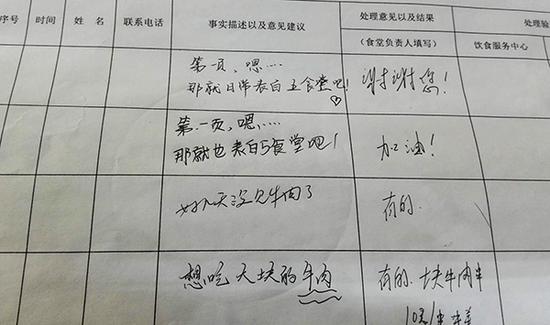 序号 时间 姓 名 联系电话 事实描述以及意见建议 处理意见以及结果 处理
(食堂负责人填写) 饮食服务中心
第一页,嗯……
那就日常表白五食堂吧!♡
谢谢您!
第一页,嗯……
那就也表白5食堂吧!
加油!
好几天没见牛肉了
有的.
想吃大块的牛肉
有的.块牛肉